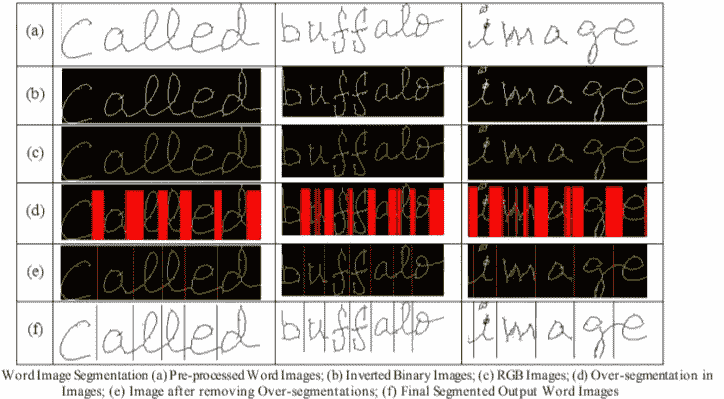 (a) Called buffalo image
(b) Called buffalo image
(c) Called buffalo image
(d) Called buffalo image
(e) Called buffalo image
(f) Called buffalo image
Word Image Segmentation (a) Pre-processed Word Images; (b) Inverted Binary Images; (c) RGB Images; (d) Over-segmentation in
Images; (e) Image after removing Over-segmentations; (f) Final Segmented Output Word Images